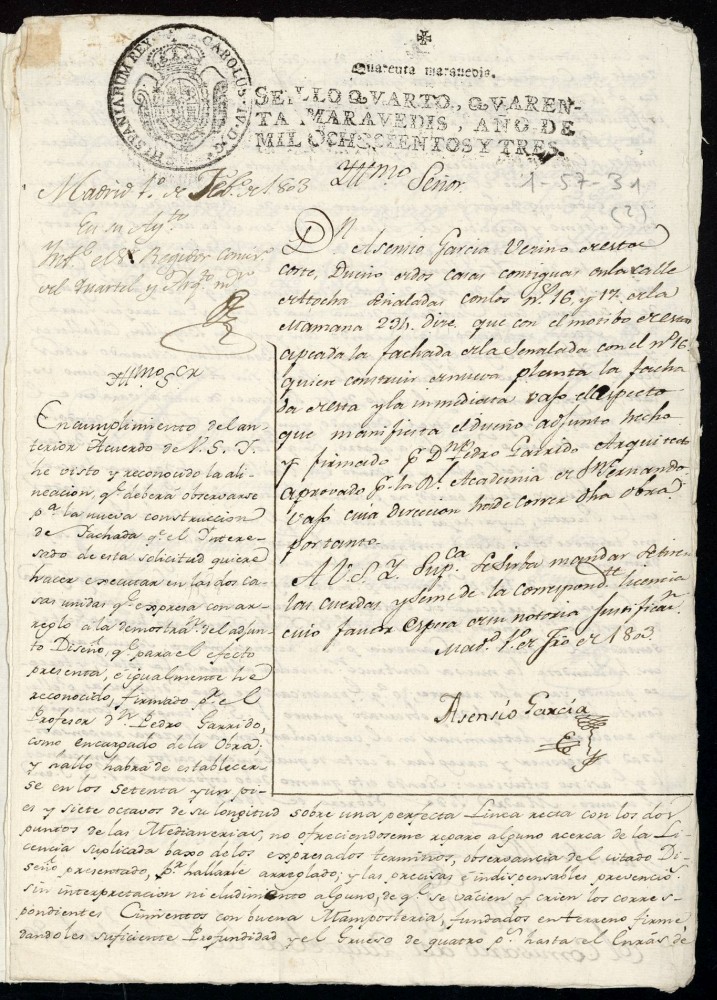 HISPANIARUM REX
CAROLUS IV D G
Quarenta maravedis.
SELLO QVARTO, QVAREN-
TA MARAVEDIS, AÑO DE
MIL OCHOCIENTOS Y TRES.
Madrid 1.º de Feb.º de 1803
En su Ay.to
Ynf.e el S.r Regidor Comis.
del Quartel y Arq.to m.or
Yllmo Señor.
1-57-31
(2)
Dn Asensio Garcia Vecino de esta
Corte, Dueño de dos casas contiguas en la calle
de Atocha señaladas con los nº 16, y 17. de la
Manzana 234. dice, que con el motibo de estar
apeada la fachada de la señalada con el nº 16.
quiere construir de nueva planta la facha
da de esta y la inmediata vajo el aspecto
que manifiesta el diseño adjunto hecho
y firmado pr Dn Pedro Garrido Arquitecto
aprovado pr la Rl Academia de Sn Fernando
vajo cuia direccion ha de correr dha obra.
por tanto.
A V.S.Y. Supca se sirba mandar se tire
las cuerdas, y se me de la correspondte licencia
cuio favor espera de su notoria Justificacn
Madd 1.º de Fro de 1803.
Asensio Garcia
Yllmo Sor
En cumplimiento del an-
terior Acuerdo de V. S. Y.
he visto y reconocido la ali-
neacion, qe deberá observarse
pa la nueva construccion
de Fachada qe el Yntere-
sado de esta solicitud quiere
hacer executar en las dos ca-
sas unidas qe expresa con ar-
reglo á la demostracn del adjun-
to Diseño, qe para el efecto
presenta, e igualmente hé
reconocido, firmado pr el
Profesor dn Pedro Garrido,
como encargado de la Obra;
y hallo habrá de establecer-
se en los setenta y un pi-
es y siete octavos de su longitud sobre una perfecta Linea recta con los dos
puntos de las Medianerias, no ofreciendoseme reparo alguno acerca de la Li-
cencia suplicada baxo de los expresados terminos, observancia del citado Di-
seño presentado, pr hallarse arreglado; y las precisas é indispensables presencis
sin interpretacion ni eludimiento alguno, de qe se vacien y crien los corres-
pondientes Cimientos con buena Mamposteria, fundados en terreno firme
dandoles suficiente Profundidad y el Grueso de quatro ps hasta el Enrás de